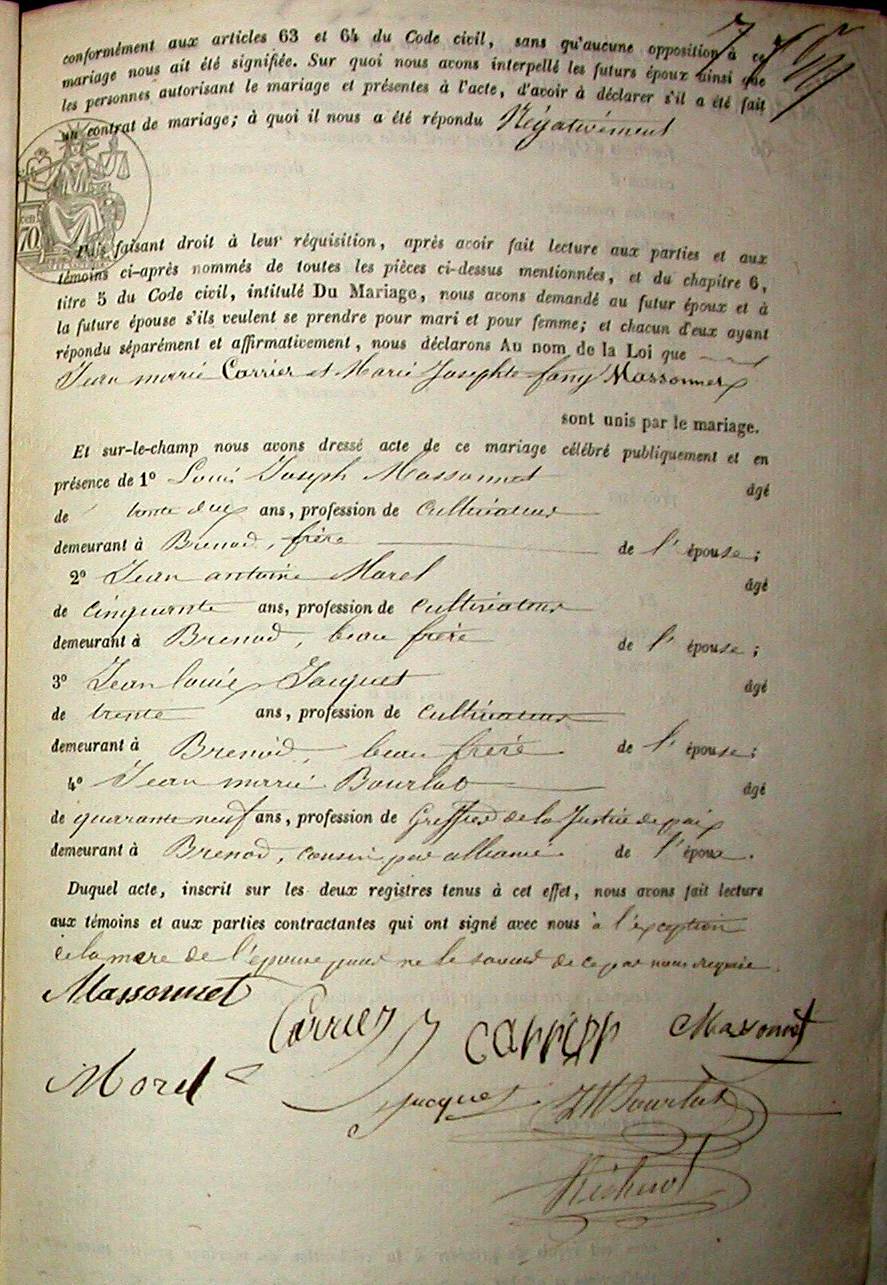 conformément aux articles 63 et 64 du Code civil, sans qu'aucune opposition à ce
mariage nous ait été signifiée. Sur quoi nous avons interpellé les futurs époux ainsi que
les personnes autorisant le mariage et présentes à l'acte, d'avoir à déclarer s'il a été fait
un contrat de mariage; à quoi il nous a été répondu Négativement
70
Puis faisant droit à leur réquisition, après avoir fait lecture aux parties et aux
témoins ci-après nommés de toutes les pièces ci-dessus mentionnées, et du chapitre 6,
titre 5 du Code civil, intitulé Du Mariage, nous avons demandé au futur époux et à
la future épouse s'ils veulent se prendre pour mari et pour femme; et chacun d'eux ayant
répondu séparément et affirmativement, nous déclarons Au nom de la Loi que
Jean marie Carrier et Marie Josephte fany Massonnet
sont unis par le mariage.
Et sur-le-champ nous avons dressé acte de ce mariage célébré publiquement et en
présence de 1º Louis Joseph Massonnet âgé
de trente deux ans, profession de cultivateur
demeurant à Brenod, frère de l'épouse;
2º Jean antoine Morel âgé
de cinquante ans, profession de cultivateur
demeurant à Brenod, beau frère de l'épouse;
3º Jean louis Jacquet âgé
de trente ans, profession de cultivateur
demeurant à Brenod, beau frère de l'épouse;
4º Jean marie Bourlot âgé
de quarante neuf ans, profession de Greffier de la Justice de paix
demeurant à Brenod, cousin par alliance de l'époux.
Duquel acte, inscrit sur les deux registres tenus à cet effet, nous avons fait lecture
aux témoins et aux parties contractantes qui ont signé avec nous à l'exception
de la mère de l'épouse pour ne le savoir de ce par nous requise.
Massonnet
Carrier carrier Massonnet
Morel
Jacquet JM Bourlot